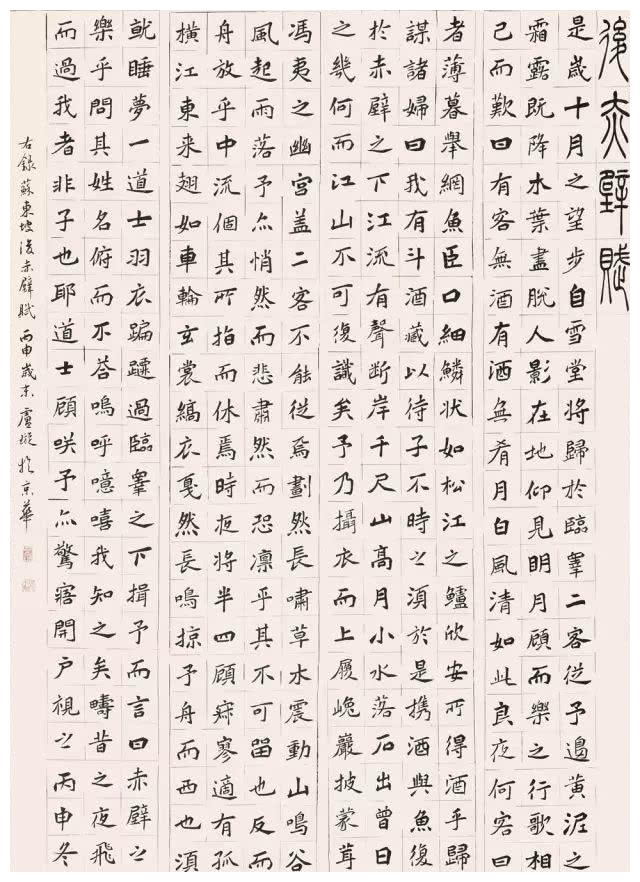 後赤壁賦
是歲十月之望步自雪堂將歸於臨睾二客從予過黃泥之
霜露既降木葉盡脫人影在地仰見明月顧而樂之行歌相
已而歎曰有客無酒有酒無肴月白風清如此良夜何客曰
者薄暮舉網魚臣口細鱗狀如松江之鱸欣安所得酒乎歸
謀諸婦曰我有斗酒藏以待子不時之須於是携酒與魚復
於赤壁之下江流有聲斷岸千尺山高月小水落石出曾日
之幾何而江山不可復識矣予乃攝衣而上履巉巖披蒙茸
馮夷之幽宮盖二客不能從焉劃然長嘯草木震動山鳴谷
風起雨落予亦悄然而悲肅然而恐凛乎其不可留也反而
舟放乎中流個其所指而休焉時夜將半四顧寂寥適有孤
橫江東来翅如車輪玄裳縞衣戛然長鳴掠予舟而西也須
就睡夢一道士羽衣蹁躚過臨睾之下揖予而言曰赤壁之
樂乎問其姓名俯而不答嗚呼噫嘻我知之矣疇昔之夜飛
而過我者非子也耶道士顧咲予亦驚寤開戶視之丙申冬
右錄蘇東坡後赤壁賦丙申歲末盧璇於京華